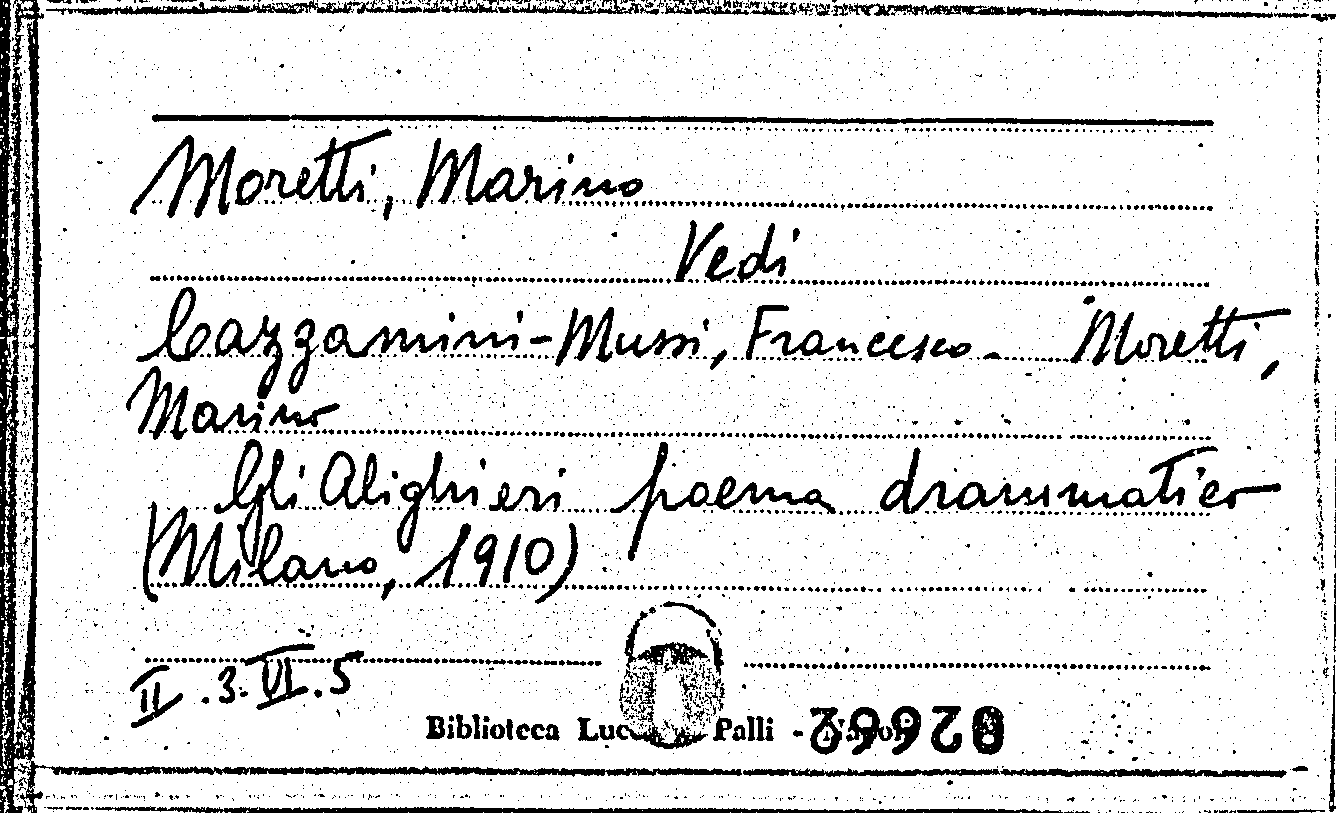 Moretti, Marino
Vedi
Cazzamini-Mussi, Francesco - Moretti,
Marino
Gli Alighieri poema drammatico
(Milano, 1910)
II.3.VI.5
Biblioteca Palli -